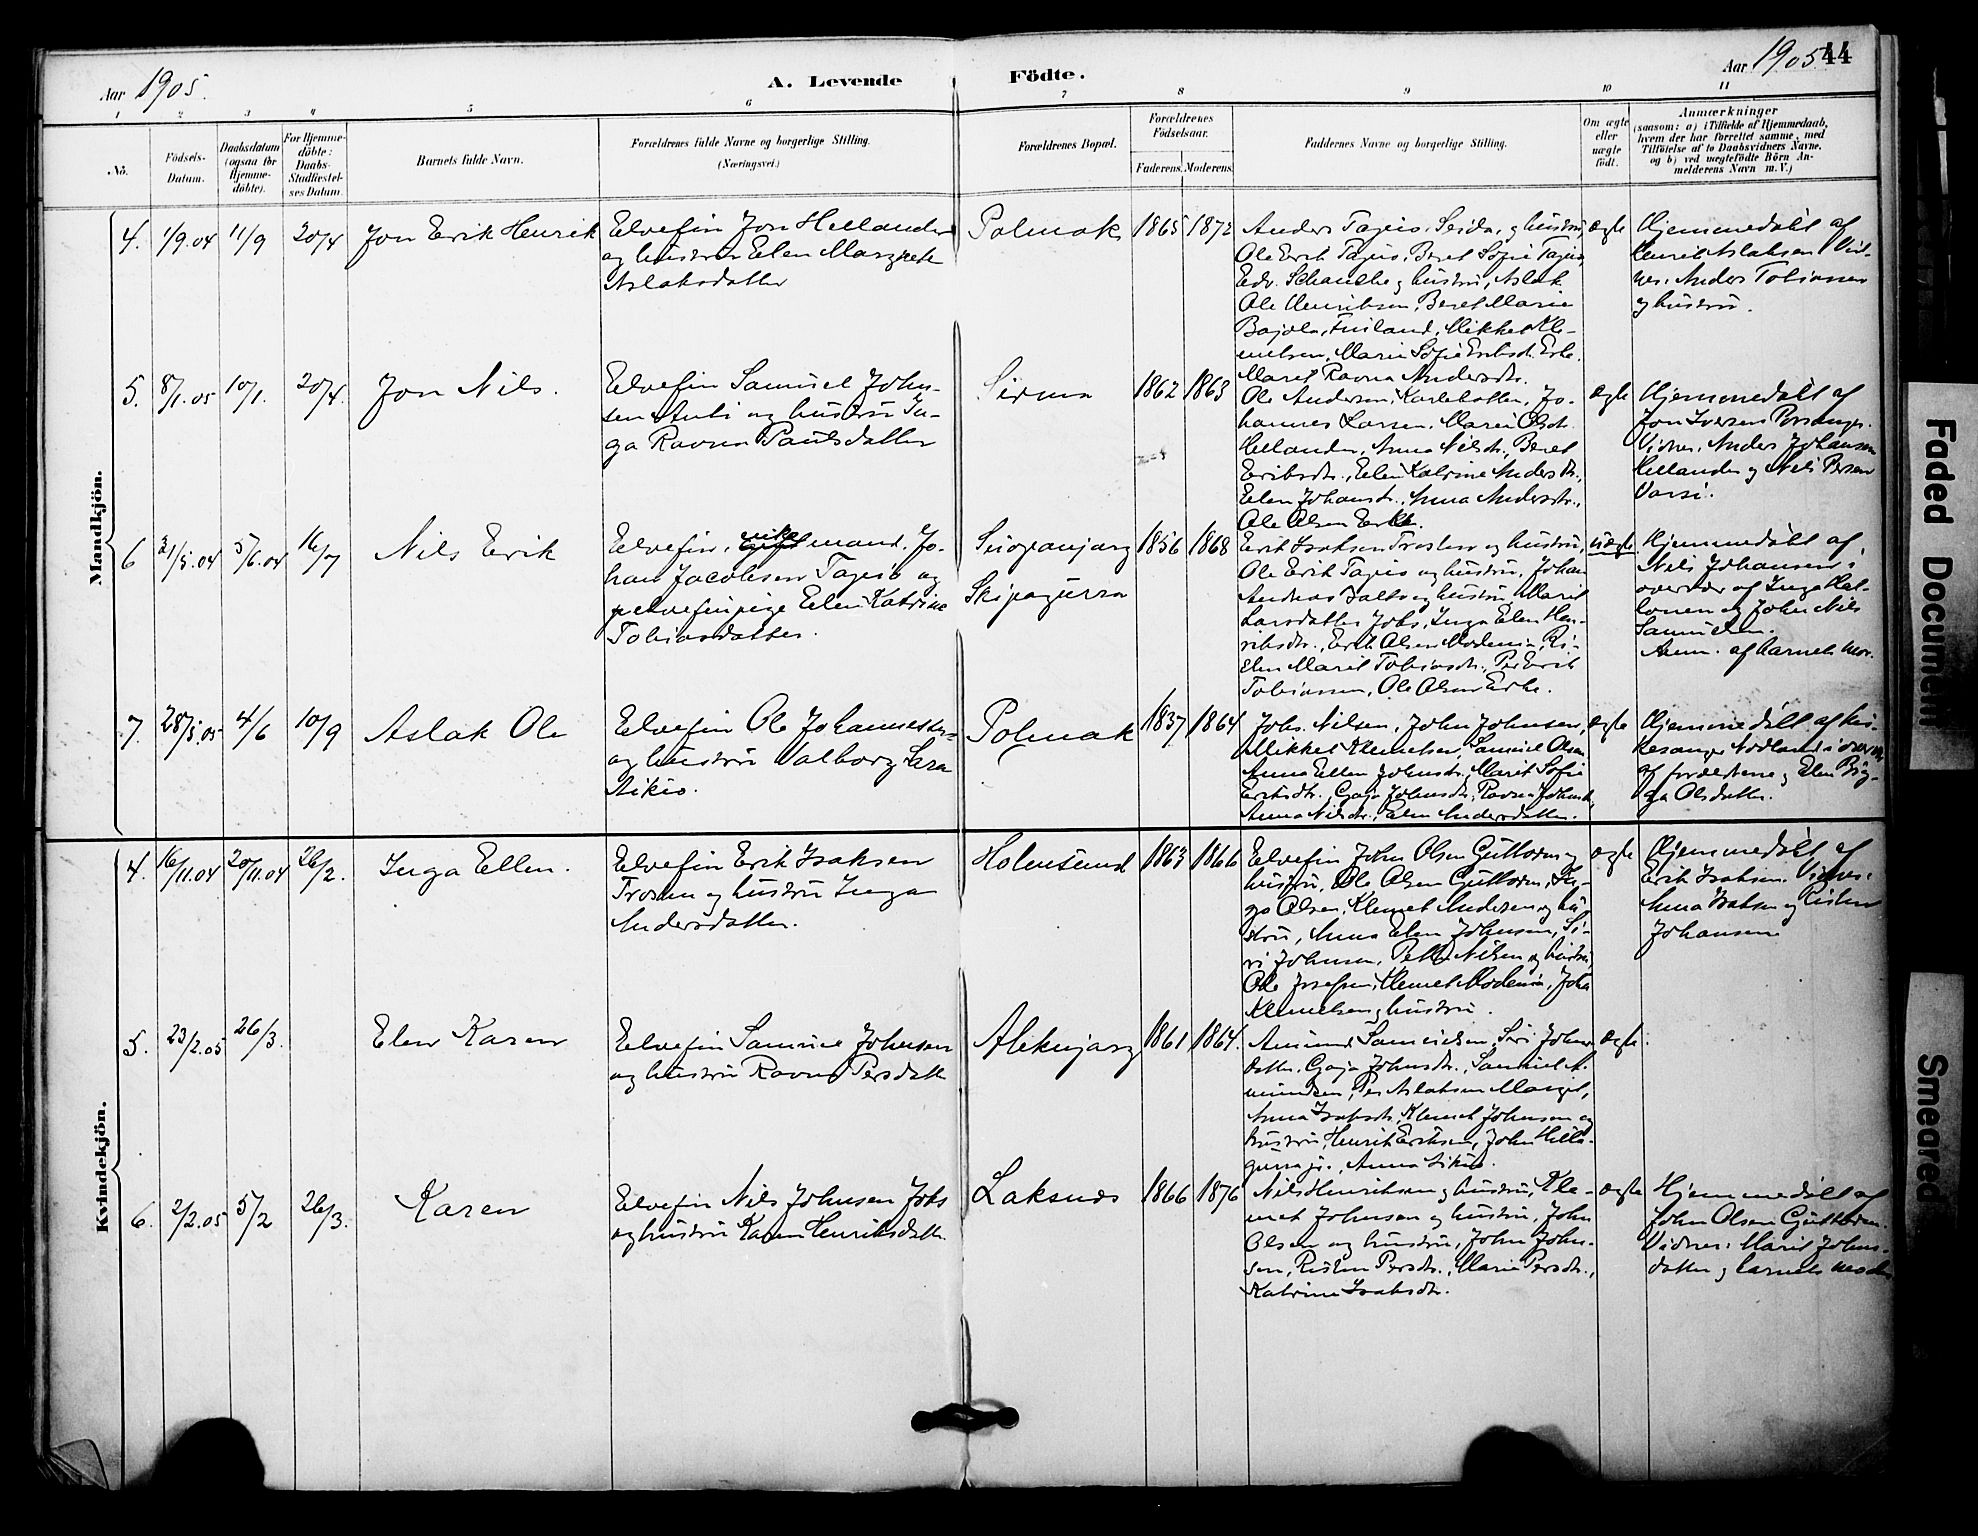 Aar 1905.
A. Levende Födte.
Aar 1905
44
1 2 3 4 5 6 7 8 9 10 11
No.
Födsels-
Datum.
Daabsdatum
(ogsaa for
Hjemme-
döbte).
For Hjemme-
döbte:
Daabs-
Stadfæstel-
ses Datum.
Barnets fulde Navn.
Forældrenes fulde Navne og borgerlige Stilling.
(Næringsvei.)
Forældrenes Bopæl.
Forældrenes
Födselsaar.
Faderens. Moderens.
Faddernes Navne og borgerlige Stilling.
Om ægte
eller
uægte
födt.
Anmærkninger
(saasom: a) i Tilfælde af Hjemmedaab,
hvem der har forrettet samme, med
Tilföielse af to Daabsvidners Navne,
og b) ved uægtefödte Börn An-
melderens Navn m. V.)
Mandkjön.
4. 1/9.04 11/9 20/4 Jon Erik Henrik
Elvefin Jon Hellander
og hustru Elen Margrete
Aslaksdatter
Polmak 1865 1872
Anders Tapio, Seida, og hustru
Ole Erik Tapio, Beret Sofie Tapio
Edv. Schanche og hustru, Aslak
Ole Henriksen, Beret Marie
Bajola, Finland, Mikkel Kle-
metsen, Marie Sofie Eriksdt. Erke.
Maret Ravna Andersdtr.
ægte
Hjemmedöbt af
Henrik Aslaksen Vid-
ner: Anders Tobiassen
og hustru.
5. 8/1.05 10/1. 20/4. Jon Nils.
Elvefin Samuel John-
sen Anti og hustru In-
ga Ravna Paulsdatter
Sirma 1862 1863
Ole Andersen, Jo-
hannes Larsen, Maren Olsdt.
Hellander, Anna Nilsdt., Beret
Eriksdt., Elen Katrine Andersdt.,
Elen Johansdt., Anna Andersdt.,
Ole Olsen Erke.
ægte
Hjemmedöbt af
Jon Iversen Porsanger.
Vidner: Anders Johansen
Hellander og Nils Persen
Varsi.
6 31/5.04 5/6.04 16/7 Nils Erik
Elvefin, enkemand, Jo-
han Jacobsen Tapio og
elvefinpige Elen Katrine
Tobiasdatter.
Suopanjarg
Skipagurra
1856 1868
Erik Isaksen Trosten og hustru,
Ole Erik Tapio og hustru, Johan
Andreas og hustru, Marit
Larsdatter Jobs, Inga Elen Hen-
riksdt., Erik Olsen Modenia,
Elen Marit Tobiasdt., Per Erik
Tobiassen, Ole Olsen Erke.
uægte
Hjemmedöbt af
Nils Johansen i
overvær af Inga
og John Nils
Samuelsen.
Anm. af barnets mor.
7. 28/5.05 4/6 10/9 Aslak Ole
Elvefin Ole Johannessen
og hustru Valborg Sara
Aikio.
Polmak 1837 1864
Johs. Nilsen, John Johnsen,
Mikkel Klemetsen, Samuel Olsen
Anna Ellen Johnsdt., Marit Sofie
Eriksdt., Gaja Johnsdt., Ravna Johnsdt.,
Anna Nilsdt., Elen Andersdatter.
ægte
Hjemmedöbt af kir-
kesanger Nordland i overvær
af forældrene og Elen Big-
ga Olsdatter.
Kvindekjön.
4. 16/11.04 20/11.04 26/2. Inga Ellen.
Elvefin Erik Isaksen
Trosten og hustru Inga
Andersdatter.
Holmsund 1863 1866
Elvefin John Olsen Guttorm og
hustru, Ole Olsen Guttorm, In-
ga Olsen, Klemet Andersen og hu-
stru, Anna Elen Johnsen, Si-
ri Johnsen, Peter Nilsen og hustru,
Ole Josefsen, Klemet Modenia, John
Klemetsen og hustru.
ægte
Hjemmedöbt af
Erik Isaksen. Vidner:
Anna Isaksen og Risten
Johansen
5. 23/2.05 26/3. Elen Karen
Elvefin Samuel Johnsen
og hustru Ravna Persdatter
Aleknjarg 1861 1864.
Amund Samuelsen, Siri Johns-
datter, Gaja Johnsdt., Samuel A-
mundsen, Per Aslaksen Marget,
Anna Isaksdt., Klemet Johnsen og
hustru, Henrik Eriksen, John Hella-
gurra jr., Anna Aikio.
ægte.
6. 2/2.05 5/2 26/3. Karen
Elvefin Nils Johnsen Jobs
og hustru Karen Henriksdatter.
Laksnes 1866 1876
Nils Henriksen og hustru, Kle-
met Johnsen og hustru, John
Olsen og hustru, John John-
sen, Risten Persdt., Marie Persdt.,
Katrine Isaksdt.
ægte
Hjemmedöbt af
John Olsen Guttorm.
Vidner: Marit Johns-
datter og barnets moder
Faded Document
Smeared